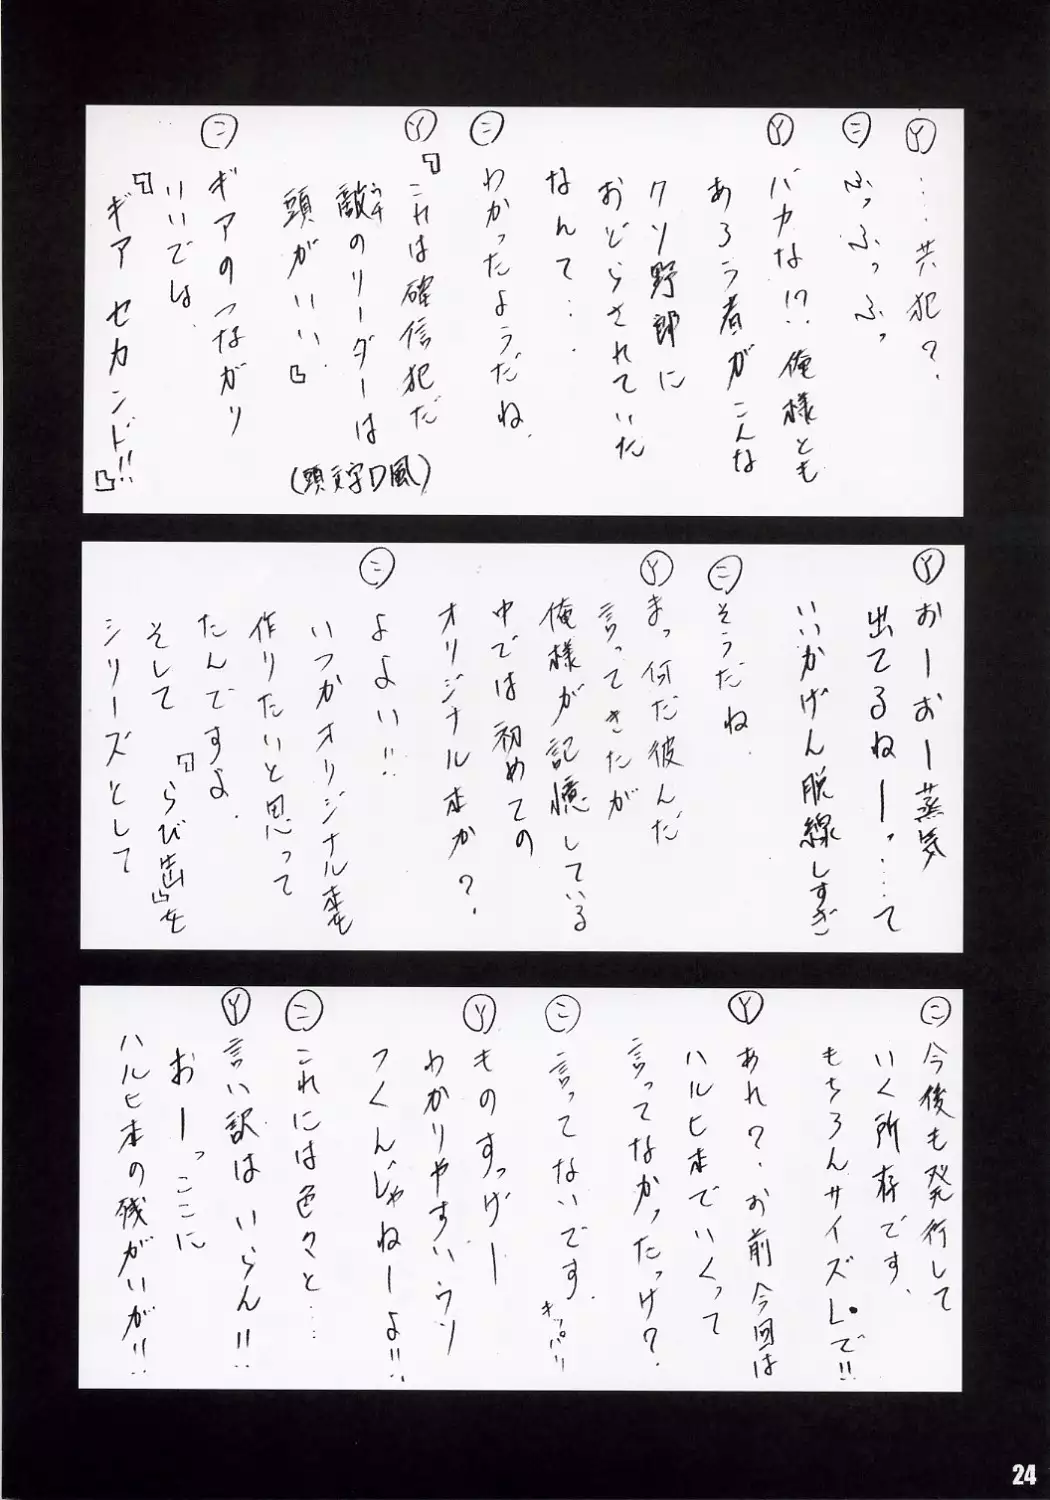 Ⓨ …共犯？
㊁ ふっふっふっ
Ⓨ バカな!?俺様とも
あろう者がこんな
クソ野郎に
おどらされていた
なんて…
㊁ わかったようだね.
Ⓨ『これは確信犯だ
敵のリーダーは
頭がいい.』
(頭文字D風)
㊁ ギアのつながり
いいでは.
『ギア セカンド!!』
Ⓨ おーおー蒸気
出てるねーっ…て
いいかげん脱線しすぎ
㊁ そうだね.
Ⓨ まっ何だ彼んだ
言ってきたが
俺様が記憶している
中では初めての
オリジナル本か？.
㊁ よよい!!
いつかオリジナル本を
作りたいと思って
たんですよ.
そして『らび出』を
シリーズとして
㊁ 今後も発行して
いく所存です.
もちろんサイズLで!!
Ⓨ あれ？.お前今回は
ハルヒ本でいくって
言ってなかったけ？.
㊁ 言ってないです.
キッパリ
Ⓨ ものすっげー
わかりやすいウソ
つくんじゃねーよ!!
㊁ これには色々と…
Ⓨ 言い訳はいらん!!
おーっここに
ハルヒ本の残がいが!!
24